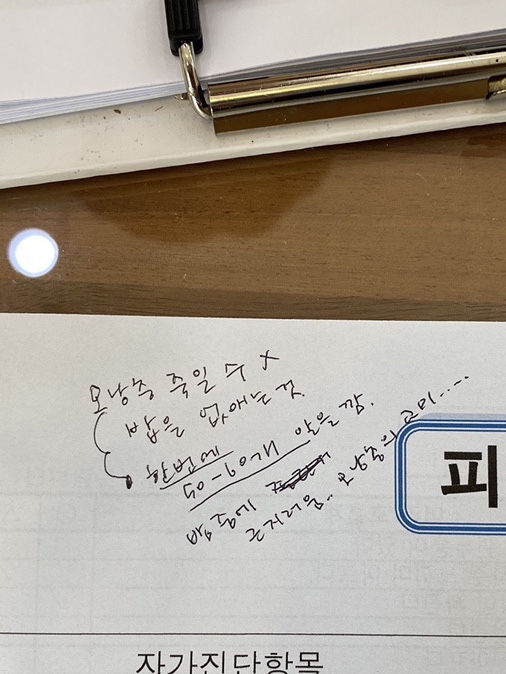 모낭충 죽일 수 X
밥을 없애는 것.
한번에
50-60개 알을 깜.
밤중에
근지러움.. 모낭충의
피
자가진단항목